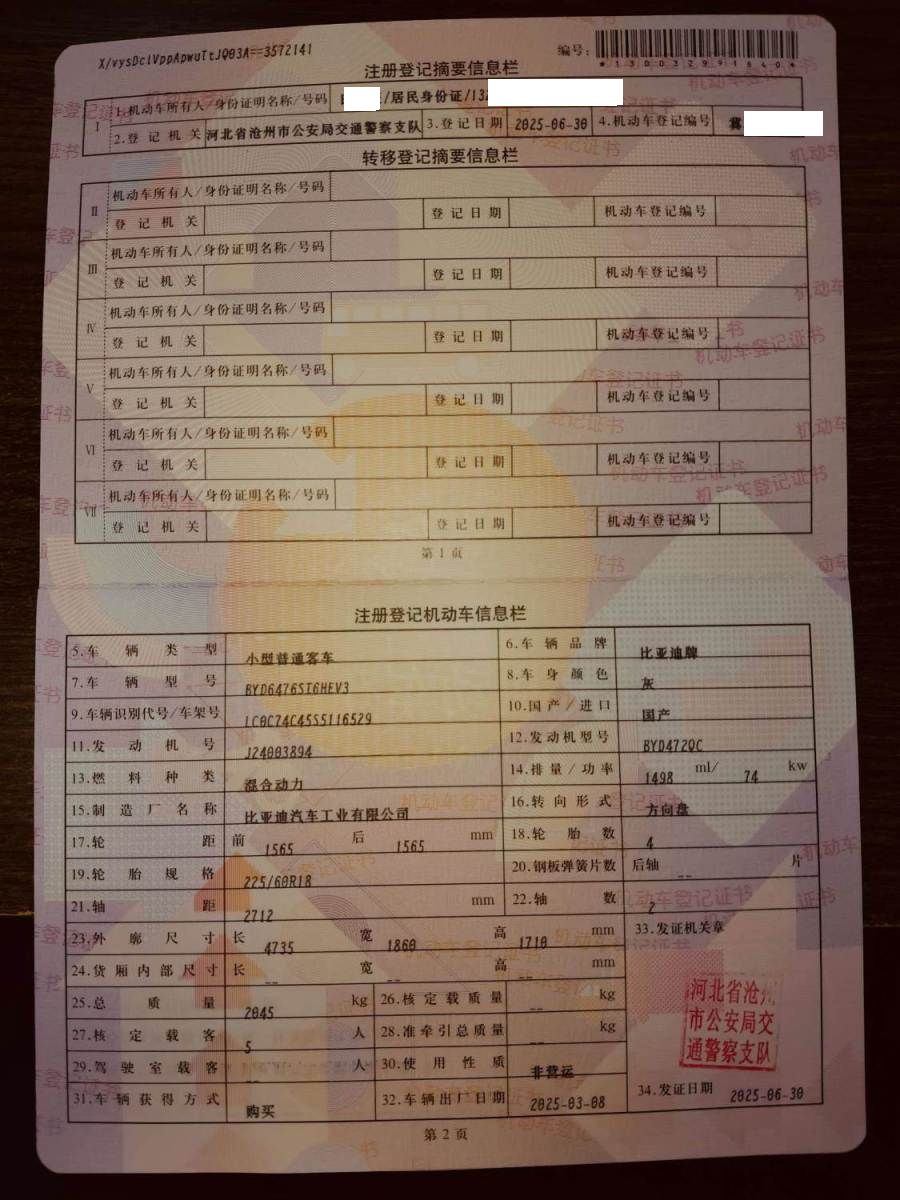 X/vysDclVppApwuTtJQ03A==3572141
编号:
*130032991640*
注册登记摘要信息栏
I
1.机动车所有人/身份证明名称/号码 /居民身份证/132
2.登记机关 河北省沧州市公安局交通警察支队 3.登记日期 2025-06-30 4.机动车登记编号 冀
转移登记摘要信息栏
II
机动车所有人/身份证明名称/号码
登记机关 登记日期 机动车登记编号
III
机动车所有人/身份证明名称/号码
登记机关 登记日期 机动车登记编号
IV
机动车所有人/身份证明名称/号码
登记机关 登记日期 机动车登记编号
V
机动车所有人/身份证明名称/号码
登记机关 登记日期 机动车登记编号
VI
机动车所有人/身份证明名称/号码
登记机关 登记日期 机动车登记编号
VII
机动车所有人/身份证明名称/号码
登记机关 登记日期 机动车登记编号
第1页
注册登记机动车信息栏
5.车辆类型 小型普通客车 6.车辆品牌 比亚迪牌
7.车辆型号 BYD6476ST6HEV3 8.车身颜色 灰
9.车辆识别代号/车架号 LC0C74C45S5116529 10.国产/进口 国产
11.发动机号 J24003894 12.发动机型号 BYD472QC
13.燃料种类 混合动力 14.排量/功率 1498 ml/ 74 kw
15.制造厂名称 比亚迪汽车工业有限公司 16.转向形式 方向盘
17.轮距 前 1565 后 1565 mm 18.轮胎数 4
19.轮胎规格 225/60R18 20.钢板弹簧片数 后轴 -- 片
21.轴距 2712 mm 22.轴数 2
23.外廓尺寸 长 4735 宽 1860 高 1710 mm 33.发证机关章
24.货厢内部尺寸 长 -- 宽 -- 高 -- mm
25.总质量 2045 kg 26.核定载质量 -- kg
27.核定载客 5 人 28.准牵引总质量 -- kg
29.驾驶室载客 -- 人 30.使用性质 非营运
河北省沧州
市公安局交
通警察支队
31.车辆获得方式 购买 32.车辆出厂日期 2025-03-08 34.发证日期 2025-06-30
第2页